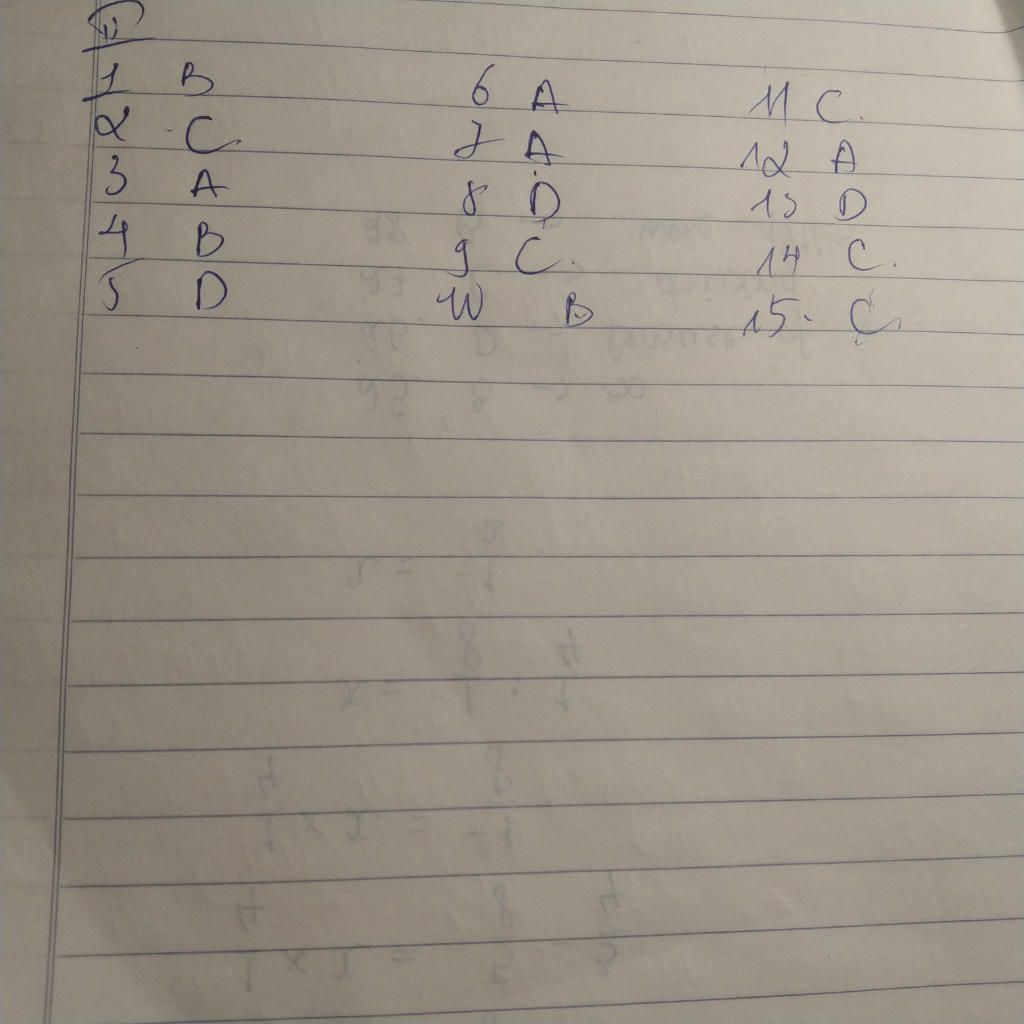 II
1 B 6 A 11 C.
2 C 7 A 12 A
3 A 8 D 13 D
4 B 9 C. 14 C.
5 D 10 B 15. C